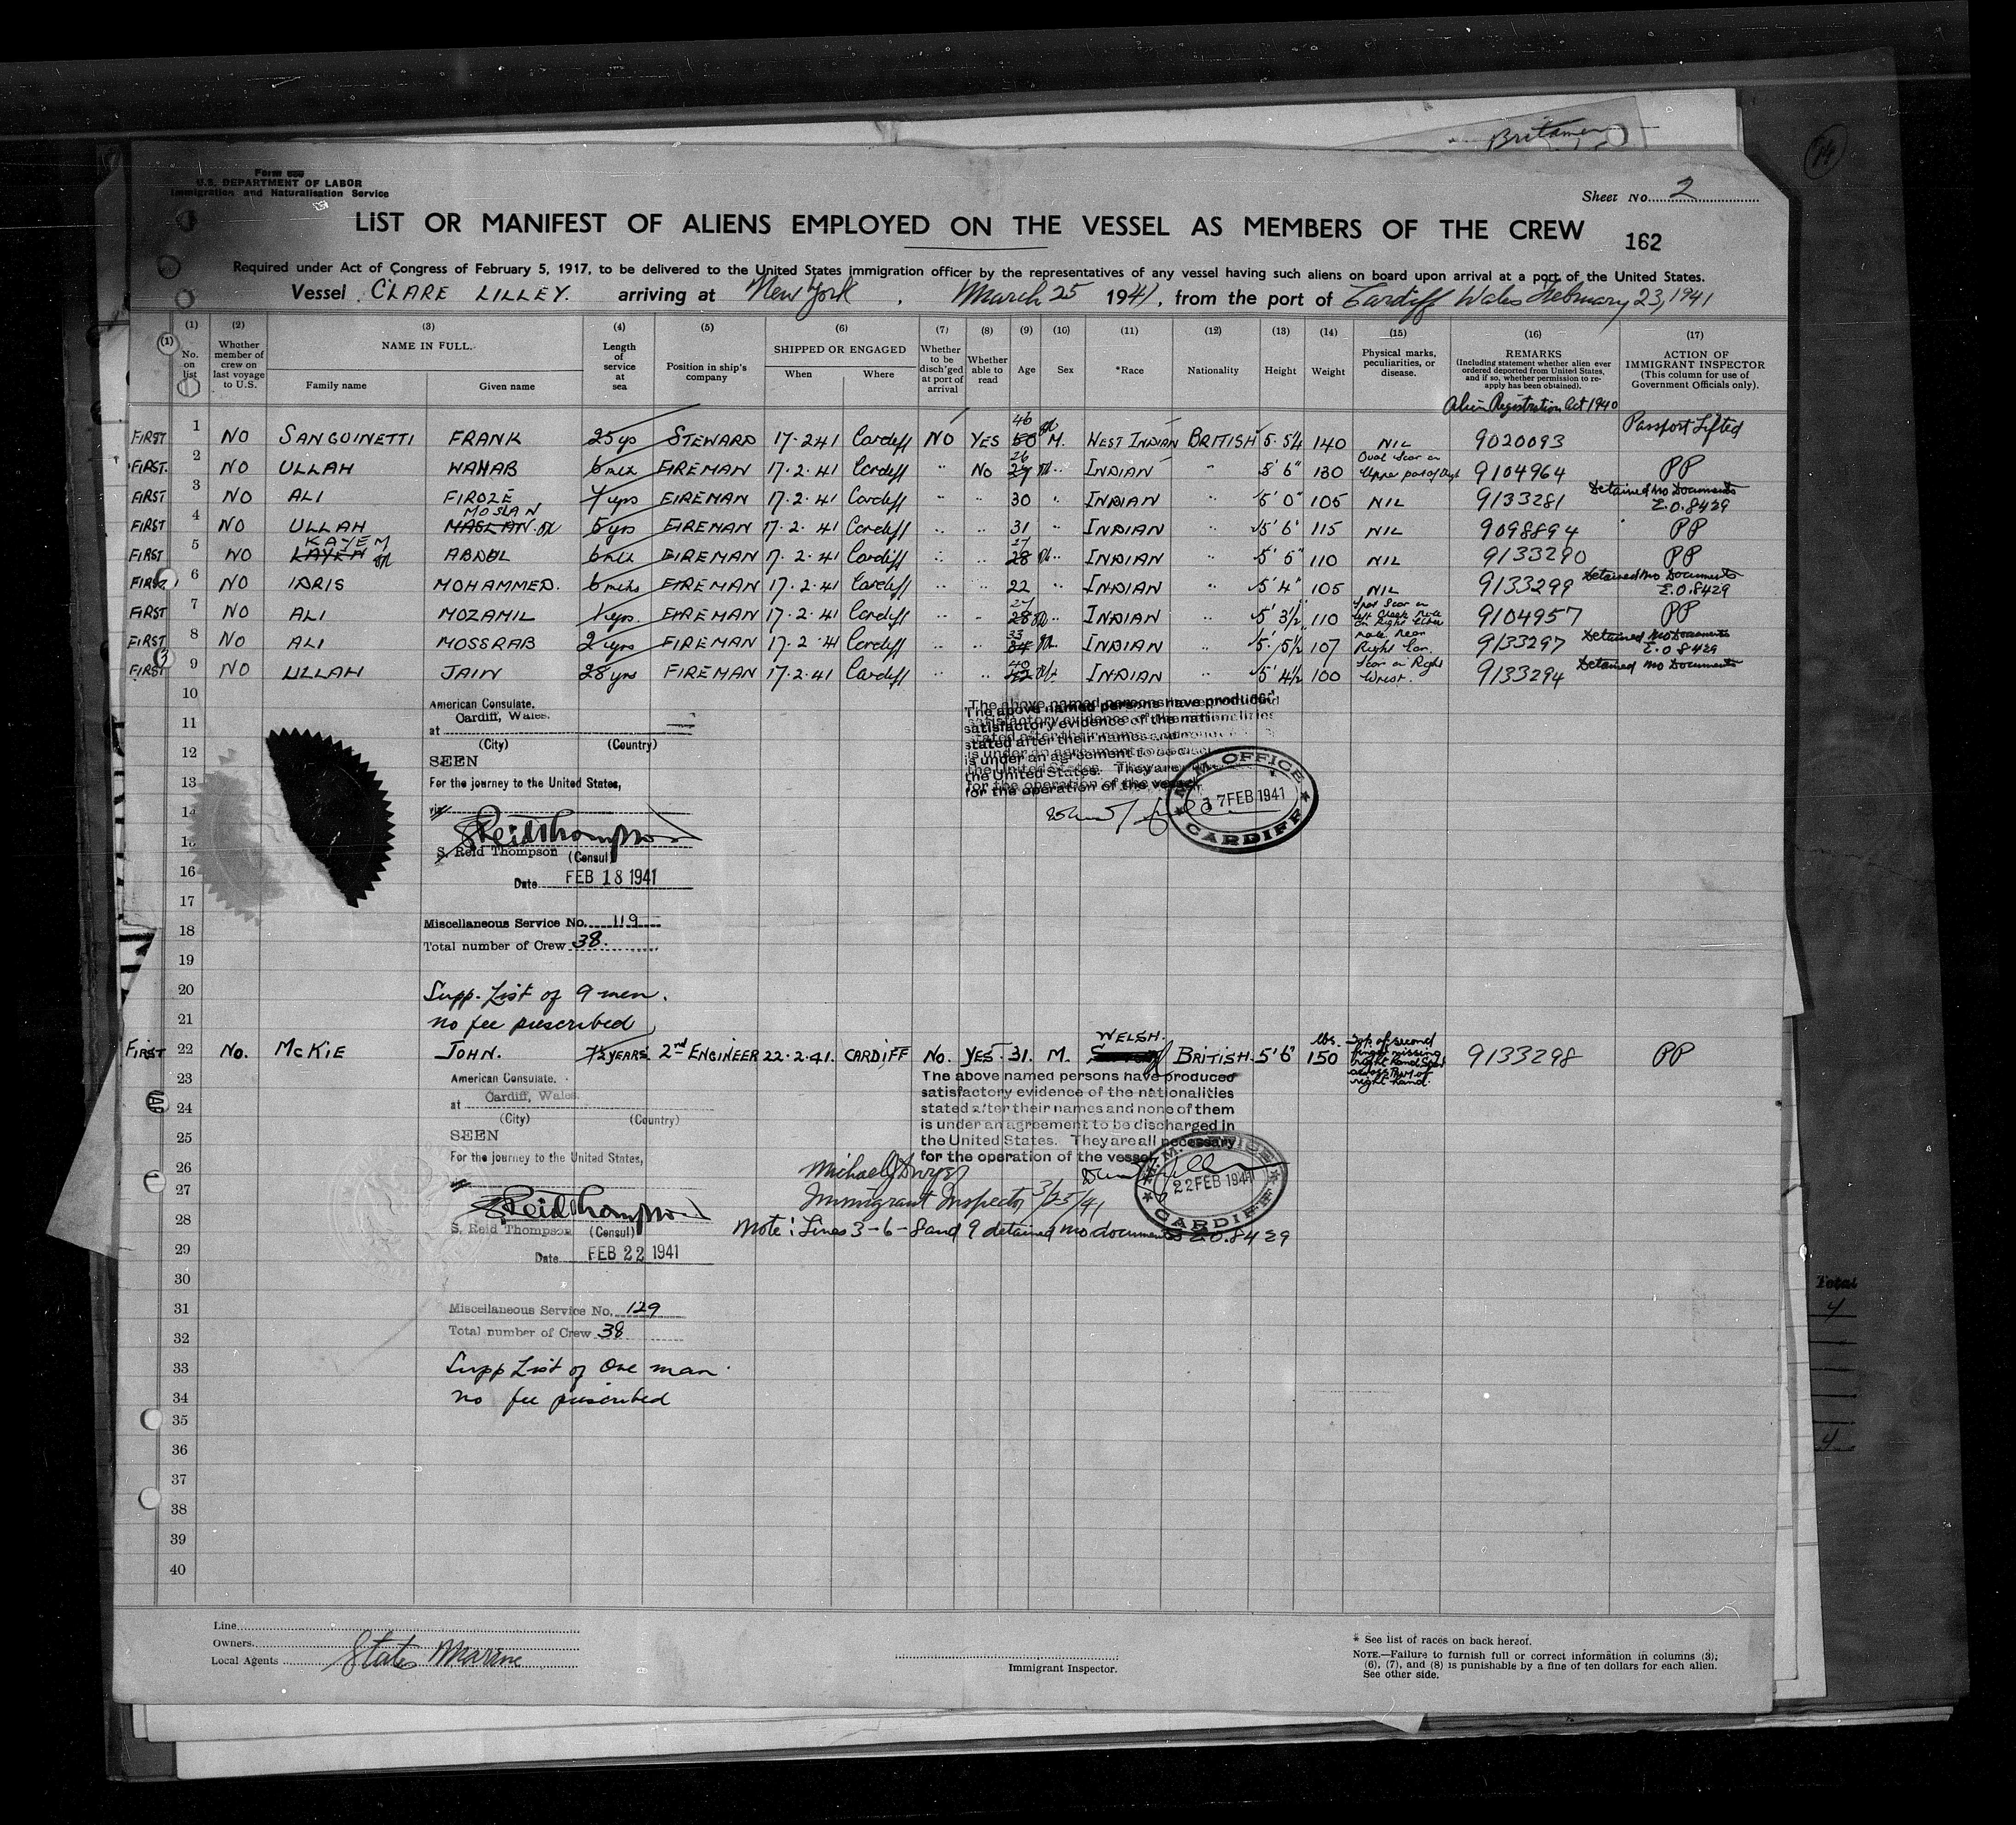 Britamer
14
Form 680
U.S. DEPARTMENT OF LABOR
Immigration and Naturalisation Service
Sheet No. 2
LIST OR MANIFEST OF ALIENS EMPLOYED ON THE VESSEL AS MEMBERS OF THE CREW
162
Required under Act of Congress of February 5, 1917, to be delivered to the United States immigration officer by the representatives of any vessel having such aliens on board upon arrival at a port of the United States.
Vessel CLARE LILLEY. arriving at New York, March 25 1941, from the port of Cardiff Wales February 23, 1941
(1) (1) (2) (3) (4) (5) (6) (7) (8) (9) (10) (11) (12) (13) (14) (15) (16) (17)
No. on list
Whether member of crew on last voyage to U.S.
NAME IN FULL.
Family name Given name
Length of service at sea
Position in ship's company
SHIPPED OR ENGAGED
When Where
Whether to be disch'ged at port of arrival
Whether able to read
Age
Sex
*Race
Nationality
Height
Weight
Physical marks, peculiarities, or disease.
REMARKS
(Including statement whether alien ever ordered deported from United States, and if so, whether permission to re-apply has been obtained).
Alien Registration Act 1940
ACTION OF IMMIGRANT INSPECTOR
(This column for use of Government Officials only).
FIRST 1 NO SANGUINETTI FRANK 25 ys STEWARD 17.2.41 Cardiff NO YES 50 46 M. WEST INDIAN BRITISH 5.5½ 140 NIL 9020093 Passport Lifted
FIRST. 2 NO ULLAH WAHAB 6 mths FIREMAN 17.2.41 Cardiff " NO 27 26 " INDIAN " 5' 6" 130 Oval Scar on Upper part of 9104964 PP
FIRST 3 NO ALI FIROZE 7 yrs FIREMAN 17.2.41 Cardiff " " 30 " INDIAN " 5' 0" 105 NIL 9133281 Detained No Documents E.O. 8429
FIRST 4 NO ULLAH MASLAN MOSLAN 5 yrs FIREMAN 17.2.41 Cardiff " " 31 " INDIAN " 5' 6" 115 NIL 9098894 PP
FIRST 5 NO LAYEM KAYEM ABDUL 6 mths FIREMAN 17.2.41 Cardiff " " 28 27 " INDIAN " 5' 5" 110 NIL 9133290 PP
FIRST 6 NO IDRIS MOHAMMED. 6 mths FIREMAN 17.2.41 Cardiff " " 22 " INDIAN " 5' 4" 105 NIL 9133299 Detained No Documents E.O. 8429
FIRST 7 NO ALI MOZAMIL 1 yrs. FIREMAN 17.2.41 Cardiff " " 28 27 " INDIAN " 5' 3½" 110 Scar on left Cheek Mole on Right 9104957 PP
FIRST 8 NO ALI MOSSRAB 2 yrs FIREMAN 17.2.41 Cardiff " " 34 33 INDIAN " 5' 5½ 107 Mole Near Right Ear. 9133297 Detained No Documents E.O 8429
FIRST 9 NO ULLAH JAIN 28 yrs FIREMAN 17.2.41 Cardiff " " 40 INDIAN " 5' 4½ 100 Scar on Right Wrist. 9133294 Detained No Documents
10
11
12
13
14
15
16
17
18
19
20
21
American Consulate.
at Cardiff, Wales.
(City) (Country)
SEEN
For the journey to the United States,
via
S Reid Thompson
S. Reid Thompson (Consul)
Date FEB 18 1941
Miscellaneous Service No. 119
Total number of Crew 38.
Supp. List of 9 men.
no fee prescribed
The above named persons have produced
satisfactory evidence of the nationalities
stated after their names and
is under an agreement to be
the United States. They are
for the operation of the vessel
M.M OFFICE
17 FEB 1941
CARDIFF
FIRST 22 No. McKIE JOHN. 7½ YEARS. 2nd ENGINEER 22.2.41. CARDIFF No. YES. 31. M. WELSH. BRITISH. 5' 6" 150 lbs. Top of second finger missing right hand Scar across of right hand. 9133298 PP
23
24
25
26
27
28
29
30
31
32
33
34
35
36
37
38
39
40
American Consulate.
at Cardiff, Wales.
(City) (Country)
SEEN
For the journey to the United States,
S Reid Thompson
S. Reid Thompson (Consul)
Date FEB 22 1941
Miscellaneous Service No. 129
Total number of Crew 38
Supp List of One man.
no fee prescribed
The above named persons have produced
satisfactory evidence of the nationalities
stated after their names and none of them
is under an agreement to be discharged in
the United States. They are all necessary
for the operation of the vessel
Michael J Dwyer
Immigrant Inspector 3/25/41
Note: Lines 3-6-8 and 9 detained no documents E.O. 8429
22 FEB 1941
CARDIFF
Total
4
4
Line
Owners
Local Agents States Marine
Immigrant Inspector.
* See list of races on back hereof.
NOTE.—Failure to furnish full or correct information in columns (3), (6), (7), and (8) is punishable by a fine of ten dollars for each alien.
See other side.